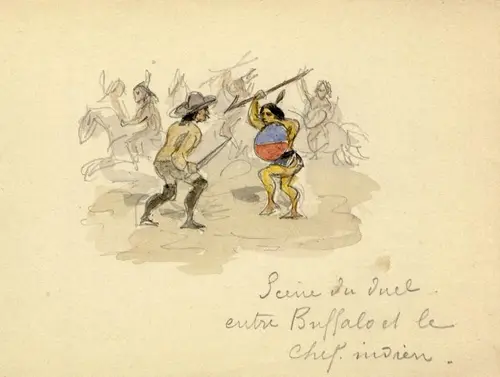 Scène du duel
entre Buffalo et le
chef indien.